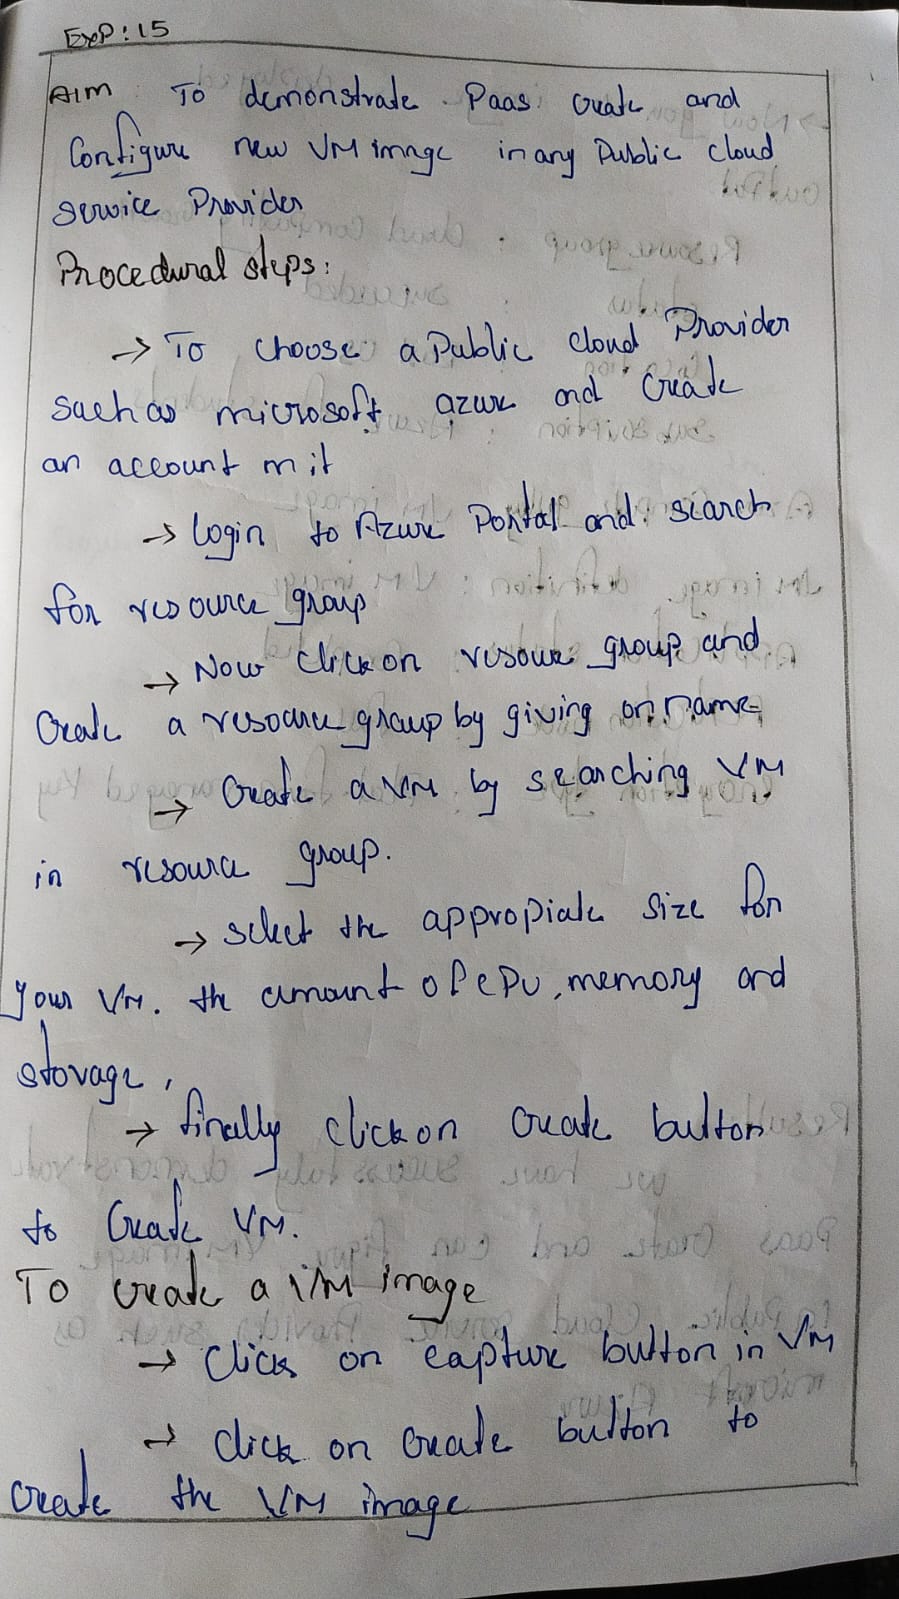 Exp: 15
AIM : To demonstrate Paas create and
Configure new VM image in any Public cloud
service Provider
Procedural steps:
→ To choose a Public cloud Provider
such as microsoft azure and create
an account in it
→ login to Azure Portal and search
for resource group
→ Now click on resource group and
Create a resource group by giving on name
→ Create a VM by searching VM
in resource group.
→ select the appropiate size for
your VM. the amount of CPU, memory and
storage,
→ finally click on create button
to create VM.
To create a VM image
→ click on capture button in VM
→ click on create button to
create the VM image